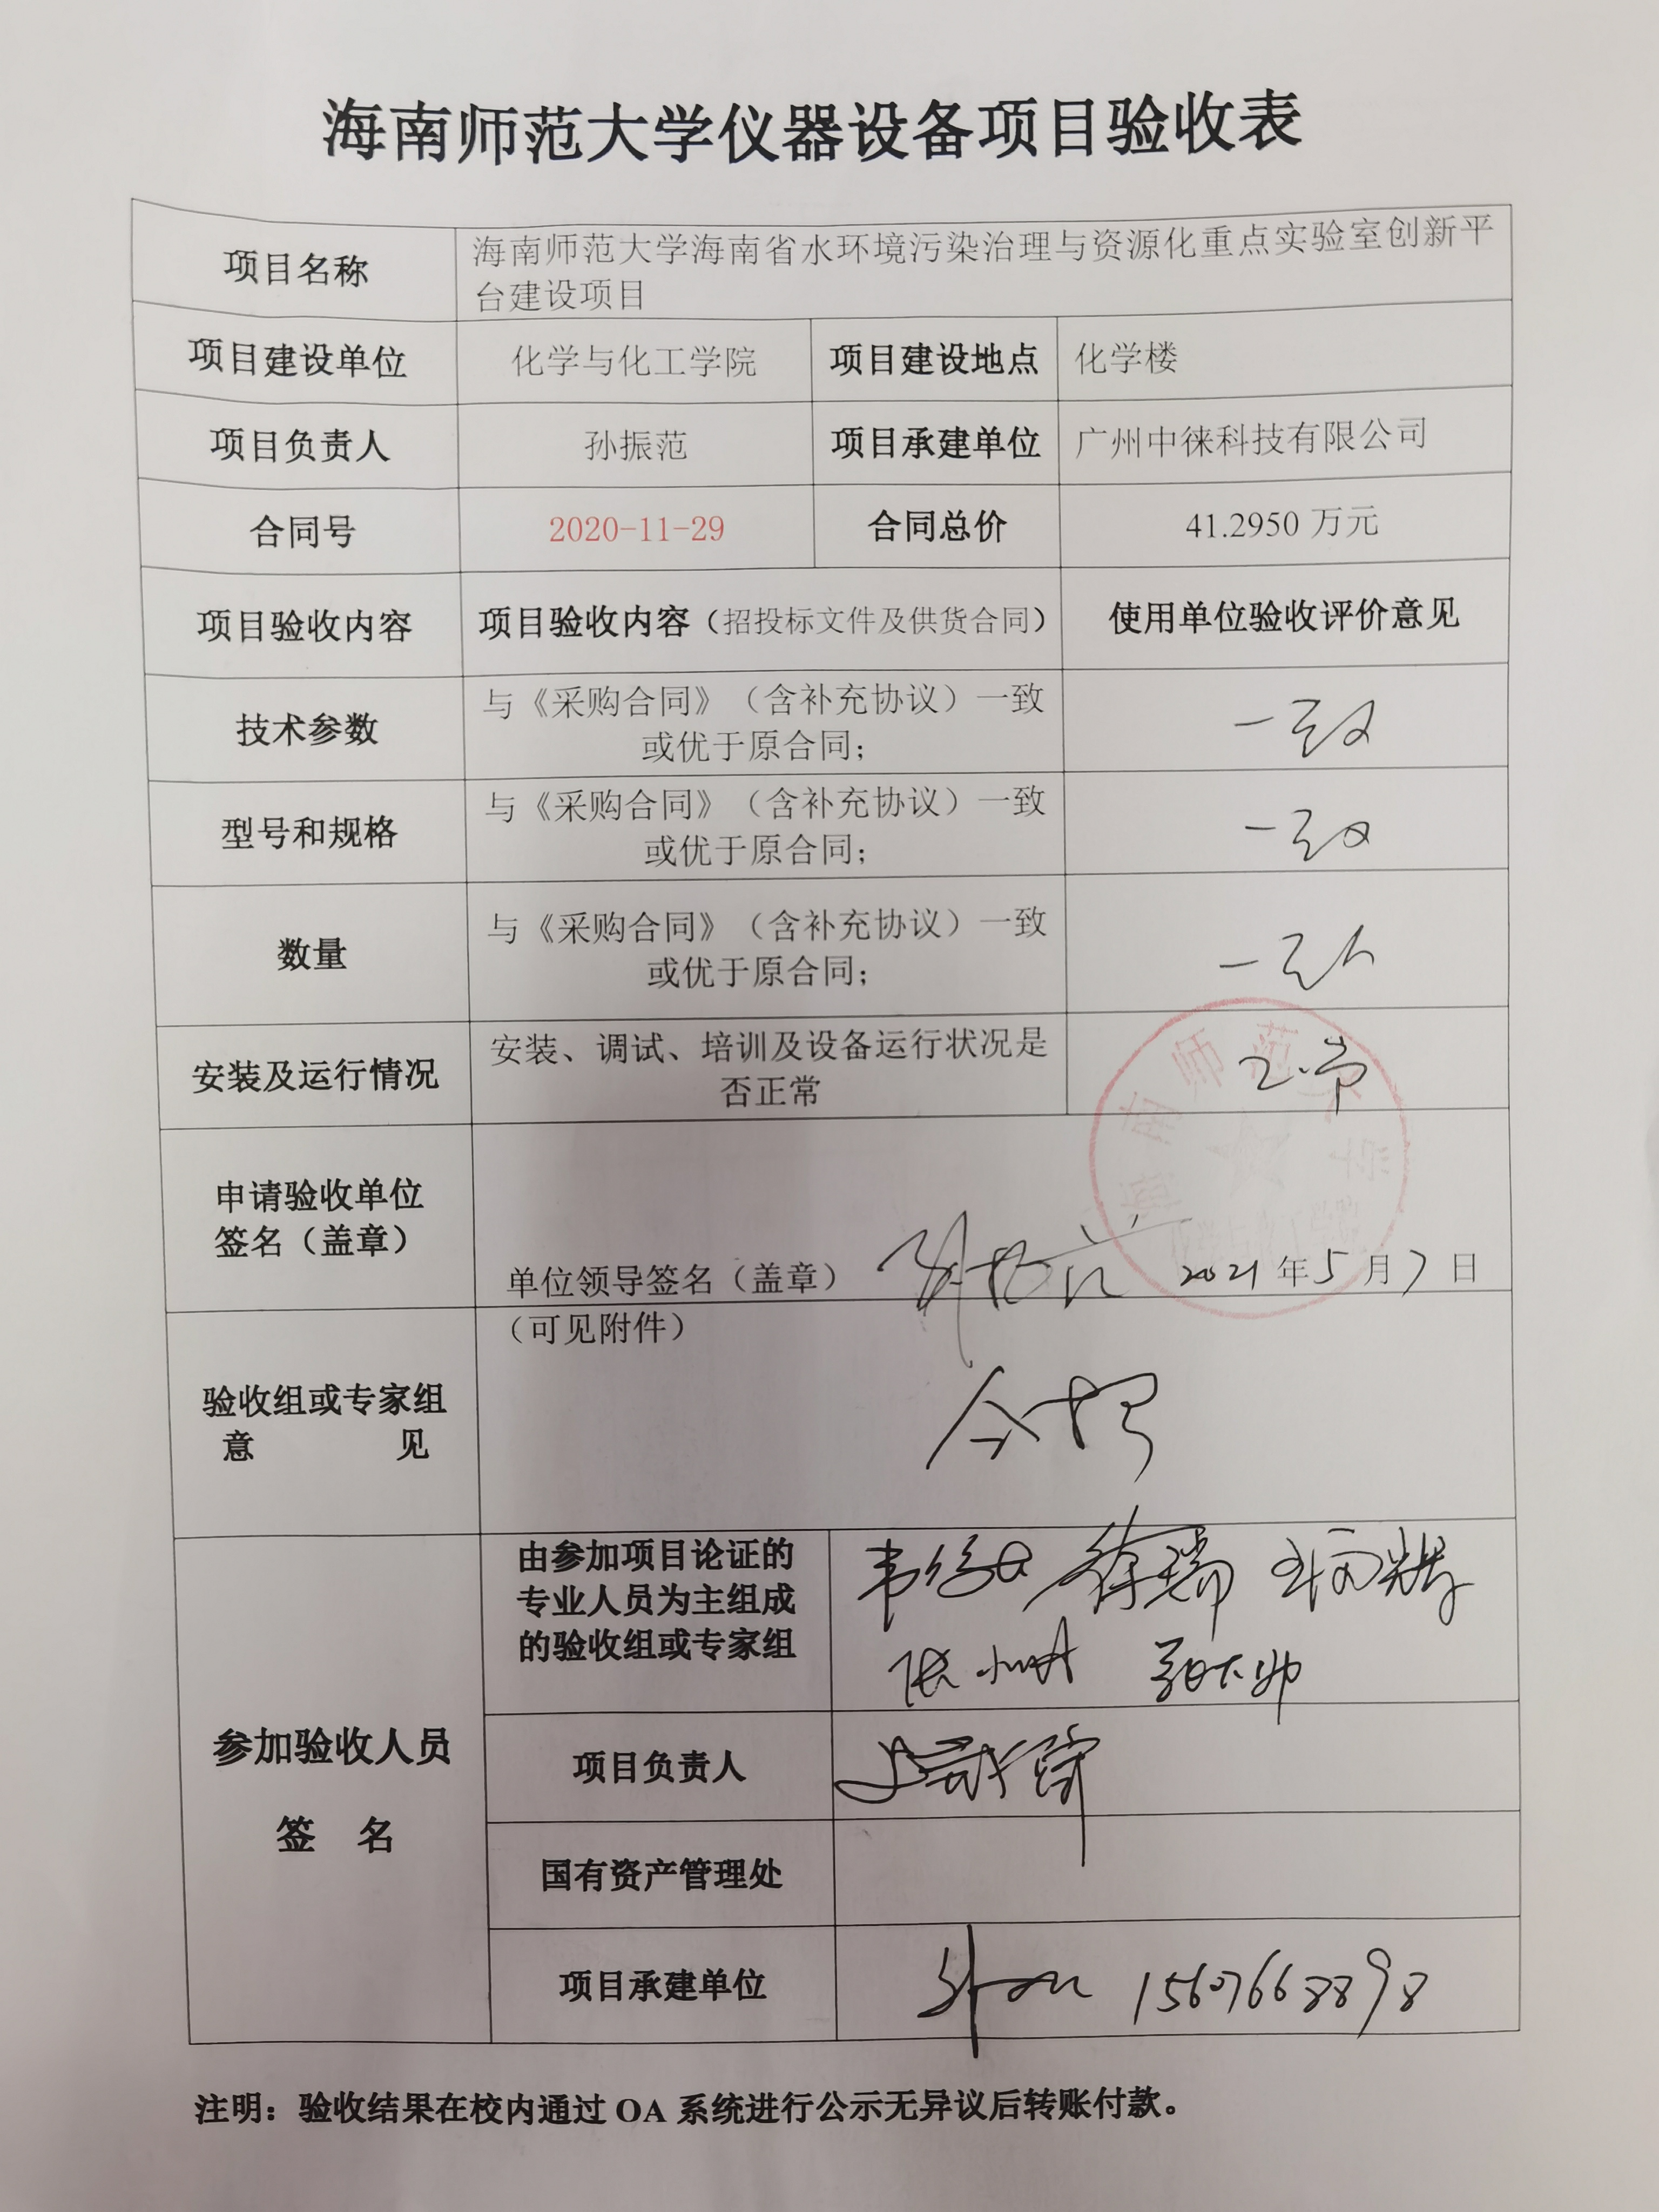 海南师范大学仪器设备项目验收表
项目名称
海南师范大学海南省水环境污染治理与资源化重点实验室创新平
台建设项目
项目建设单位 化学与化工学院 项目建设地点 化学楼
项目负责人 孙振范 项目承建单位 广州中徕科技有限公司
合同号 2020-11-29 合同总价 41.2950 万元
项目验收内容 项目验收内容（招投标文件及供货合同） 使用单位验收评价意见
技术参数
与《采购合同》（含补充协议）一致
或优于原合同；
一致
型号和规格
与《采购合同》（含补充协议）一致
或优于原合同；
一致
数量
与《采购合同》（含补充协议）一致
或优于原合同；
一致
安装及运行情况
安装、调试、培训及设备运行状况是
否正常
正常
申请验收单位
签名（盖章）
单位领导签名（盖章） 2021 年 5 月 7 日
验收组或专家组
意 见
（可见附件）
合格
参加验收人员
签 名
由参加项目论证的
专业人员为主组成
的验收组或专家组
徐瑞
项目负责人
国有资产管理处
项目承建单位
15607668898
注明：验收结果在校内通过 OA 系统进行公示无异议后转账付款。